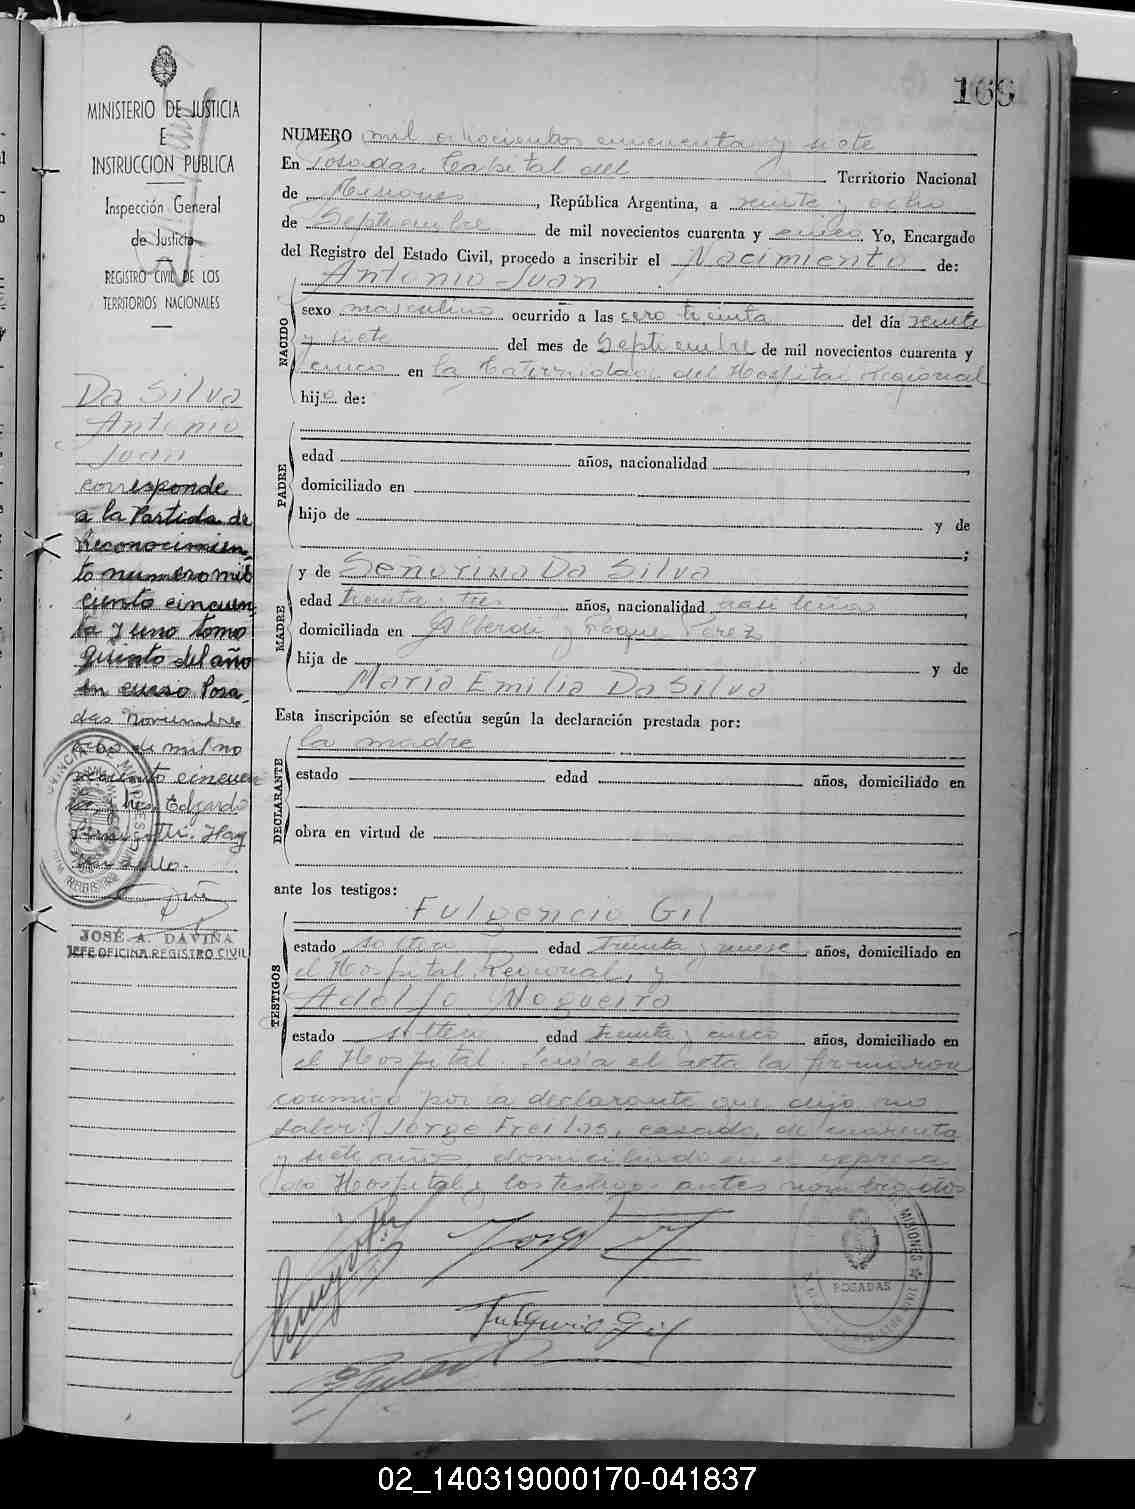 169
MINISTERIO DE JUSTICIA
E
INSTRUCCIÓN PUBLICA
Inspección General
de Justicia
REGISTRO CIVIL DE LOS
TERRITORIOS NACIONALES
Da Silva
Antonio
Juan
corresponde
a la Partida de
Reconocimien-
to numero mil
ciento cincuen-
ta y uno tomo
quinto del año
en curso Posa-
das Noviembre
de mil no
cincuen
Edgardo
Hay
sello.
JOSÉ A. DAVIÑA
JEFE OFICINA REGISTRO CIVIL
NUMERO mil ochocientos cincuenta y siete
En Posadas, Capital del Territorio Nacional
de Misiones, República Argentina, a veinte y ocho
de Septiembre de mil novecientos cuarenta y cinco Yo, Encargado
del Registro del Estado Civil, procedo a inscribir el Nacimiento de:
Antonio Juan
NACIDO
sexo masculino ocurrido a las cero treinta del día veinte
y siete del mes de Septiembre de mil novecientos cuarenta y
cinco en la Maternidad del Hospital Regional
hijo de:
PADRE
edad años, nacionalidad
domiciliado en
hijo de y de
;
MADRE
y de Señorina Da Silva
edad treinta y tres años, nacionalidad brasileña
domiciliada en Alberdi y Roque Perez
hija de y de
María Emilia Da Silva
Esta inscripción se efectúa según la declaración prestada por:
DECLARANTE
la madre
estado edad años, domiciliado en
obra en virtud de
ante los testigos:
TESTIGOS
Fulgencio Gil
estado soltero edad treinta y nueve años, domiciliado en
el Hospital Regional, y
Adolfo Nogueiro
estado soltero edad treinta y cinco años, domiciliado en
el Hospital. Leída el acta la firmaron
conmigo por la declarante que dijo no
saber, Jorge Freitas, casado, de cuarenta
y siete años domiciliado en el expresa
do Hospital y los testigos antes nombrados
MISIONES
POSADAS
Fulgencio Gil
02_140319000170-041837